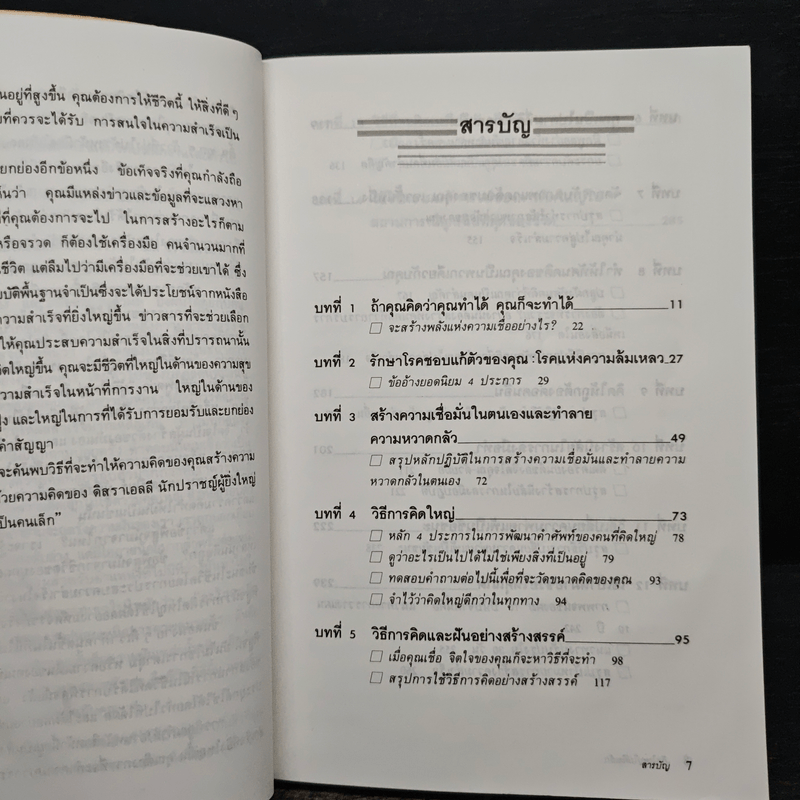 นอยู่ที่สูงขึ้น คุณต้องการให้ชีวิตนี้ ให้สิ่งที่ดีๆ
ยที่ควรจะได้รับ การสนใจในความสำเร็จเป็น
ยกย่องอีกข้อหนึ่ง ข้อเท็จจริงที่คุณกำลังถือ
ห็นว่า คุณมีแหล่งข่าวและข้อมูลที่จะแสวงหา
ที่คุณต้องการจะไป ในการสร้างอะไรก็ตาม
หรือจรวด ก็ต้องใช้เครื่องมือ คนจำนวนมากที่
ชีวิต แต่ลืมไปว่ามีเครื่องมือที่จะช่วยเขาได้ ซึ่ง
บัติพื้นฐานจำเป็นซึ่งจะได้ประโยชน์จากหนังสือ
ความสำเร็จที่ยิ่งใหญ่ขึ้น ข่าวสารที่จะช่วยเลือก
ให้คุณประสบความสำเร็จในสิ่งที่ปรารถนานั้น
ิตใหญ่ขึ้น คุณจะมีชีวิตที่ใหญ่ในด้านของความสุข
วามสำเร็จในหน้าที่การงาน ใหญ่ในด้านของ
ูง และใหญ่ในการที่ได้รับการยอมรับและยกย่อง
คำสัญญา
จะค้นพบวิธีที่จะทำให้ความคิดของคุณสร้างความ
ด้วยความคิดของ ดิสราเอลลี นักปราชญ์ผู้ยิ่งใหญ่
เป็นคนเล็ก”
สารบัญ
บทที่ 1 ถ้าคุณคิดว่าคุณทำได้ คุณก็จะทำได้ 11
จะสร้างพลังแห่งความเชื่ออย่างไร? 22
บทที่ 2 รักษาโรคชอบแก้ตัวของคุณ :โรคแห่งความล้มเหลว 27
ข้ออ้างยอดนิยม 4 ประการ 29
บทที่ 3 สร้างความเชื่อมั่นในตนเองและทำลาย
ความหวาดกลัว 49
สรุปหลักปฏิบัติในการสร้างความเชื่อมั่นและทำลายความ
หวาดกลัวในตนเอง 72
บทที่ 4 วิธีการคิดใหญ่ 73
หลัก 4 ประการในการพัฒนาคำศัพท์ของคนที่คิดใหญ่ 78
ดูว่าอะไรเป็นไปได้ไม่ใช่เพียงสิ่งที่เป็นอยู่ 79
ทดสอบคำถามต่อไปนี้เพื่อที่จะวัดขนาดคิดของคุณ 93
จำไว้ว่าคิดใหญ่ดีกว่าในทุกทาง 94
บทที่ 5 วิธีการคิดและฝันอย่างสร้างสรรค์ 95
เมื่อคุณเชื่อ จิตใจของคุณก็จะหาวิธีที่จะทำ 98
สรุปการใช้วิธีการคิดอย่างสร้างสรรค์ 117
สารบัญ 7